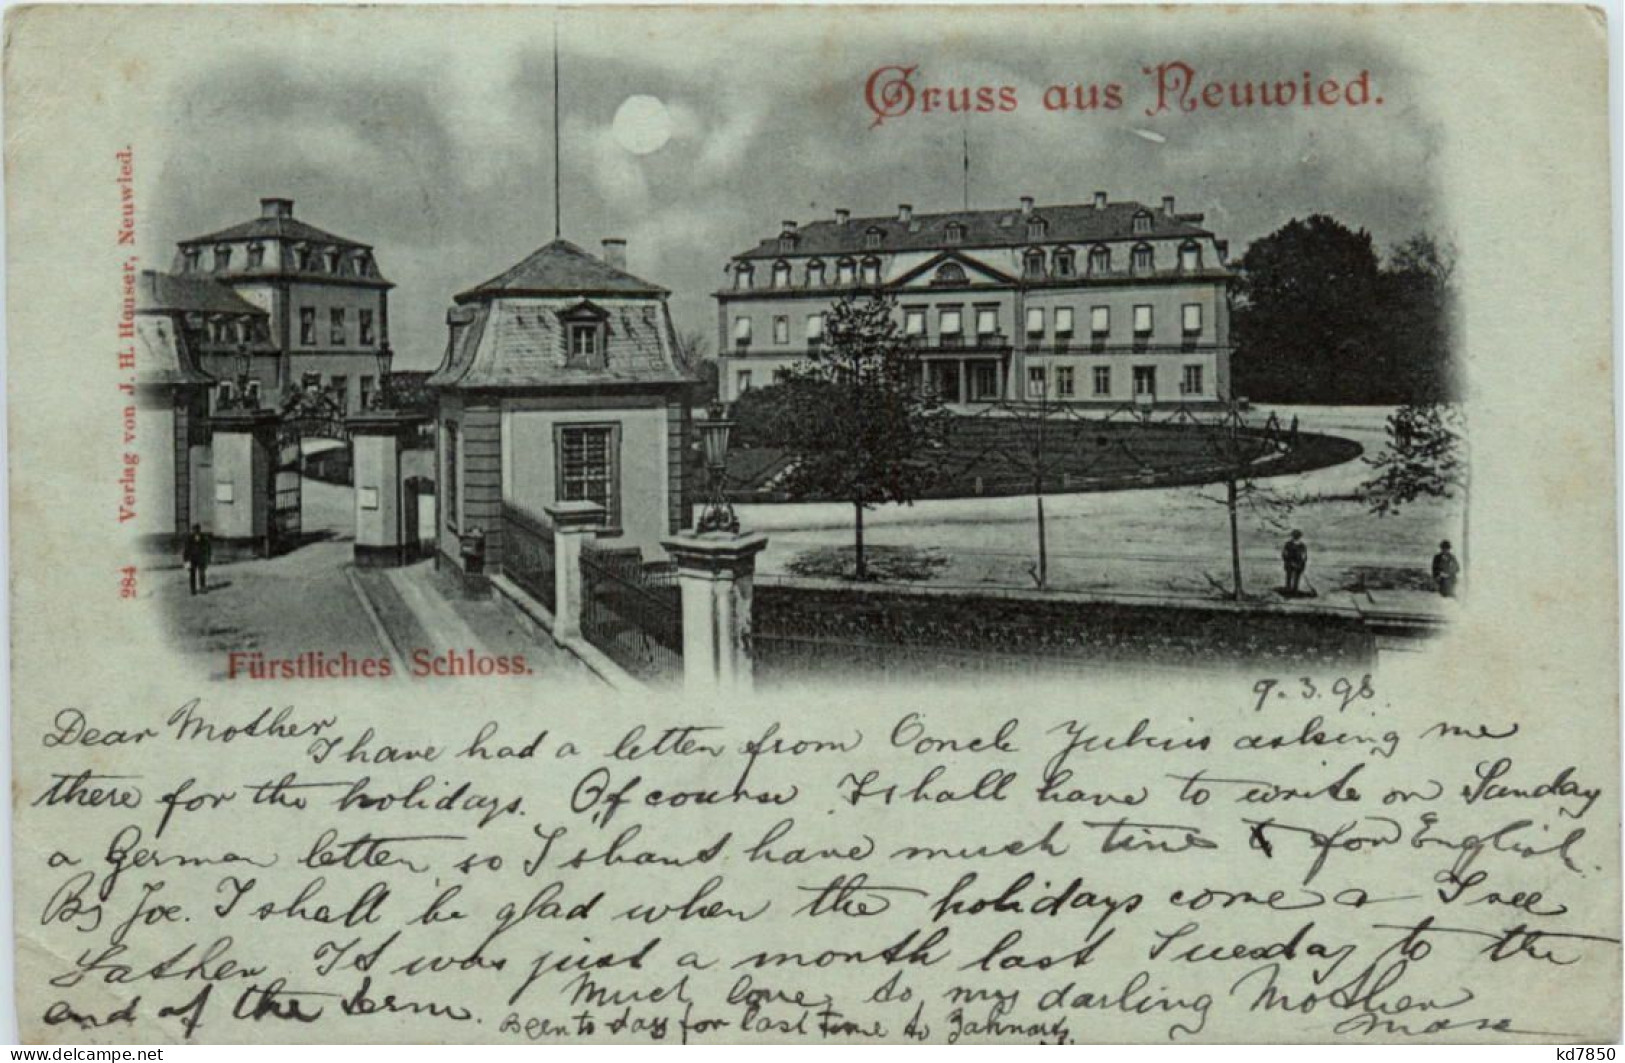 Gruss aus Neuwied.
284 Verlag von J. H. Hauser, Neuwied.
Fürstliches Schloss.
9.3.98.
Dear Mother,
I have had a letter from Oncle Julius asking me
there for the holidays. Of course I shall have to write on Sunday
a German letter, so I shant have much time for English.
By Joe. I shall be glad when the holidays come & I see
Father. It was just a month last Tuesday to the
end of the term. Much love to my darling Mother
Been to day for last time to Zahnarzt.
kd7850